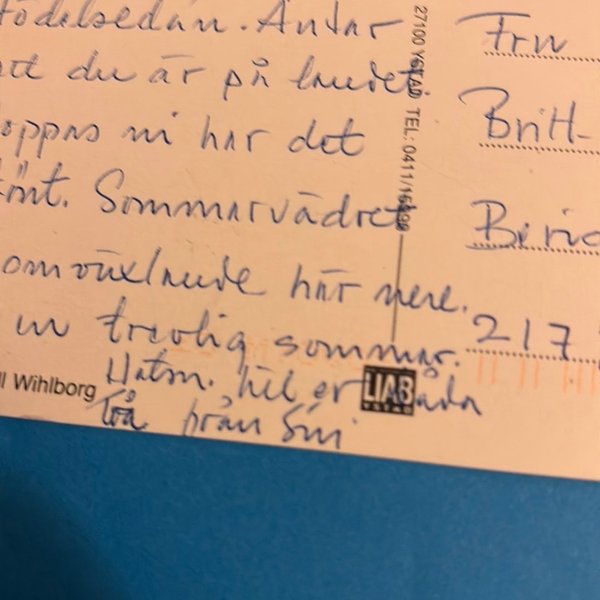 födelsedan. Antar
att du är på landet.
oppas ni har det
önt. Sommarvädret
omväxlande här nere.
en trevlig sommar.
Hälsn. till er båda
från Siri
ll Wihlborg
LIAB
YSTAD
27100 YSTAD TEL: 0411/
Fru
Britt-
217